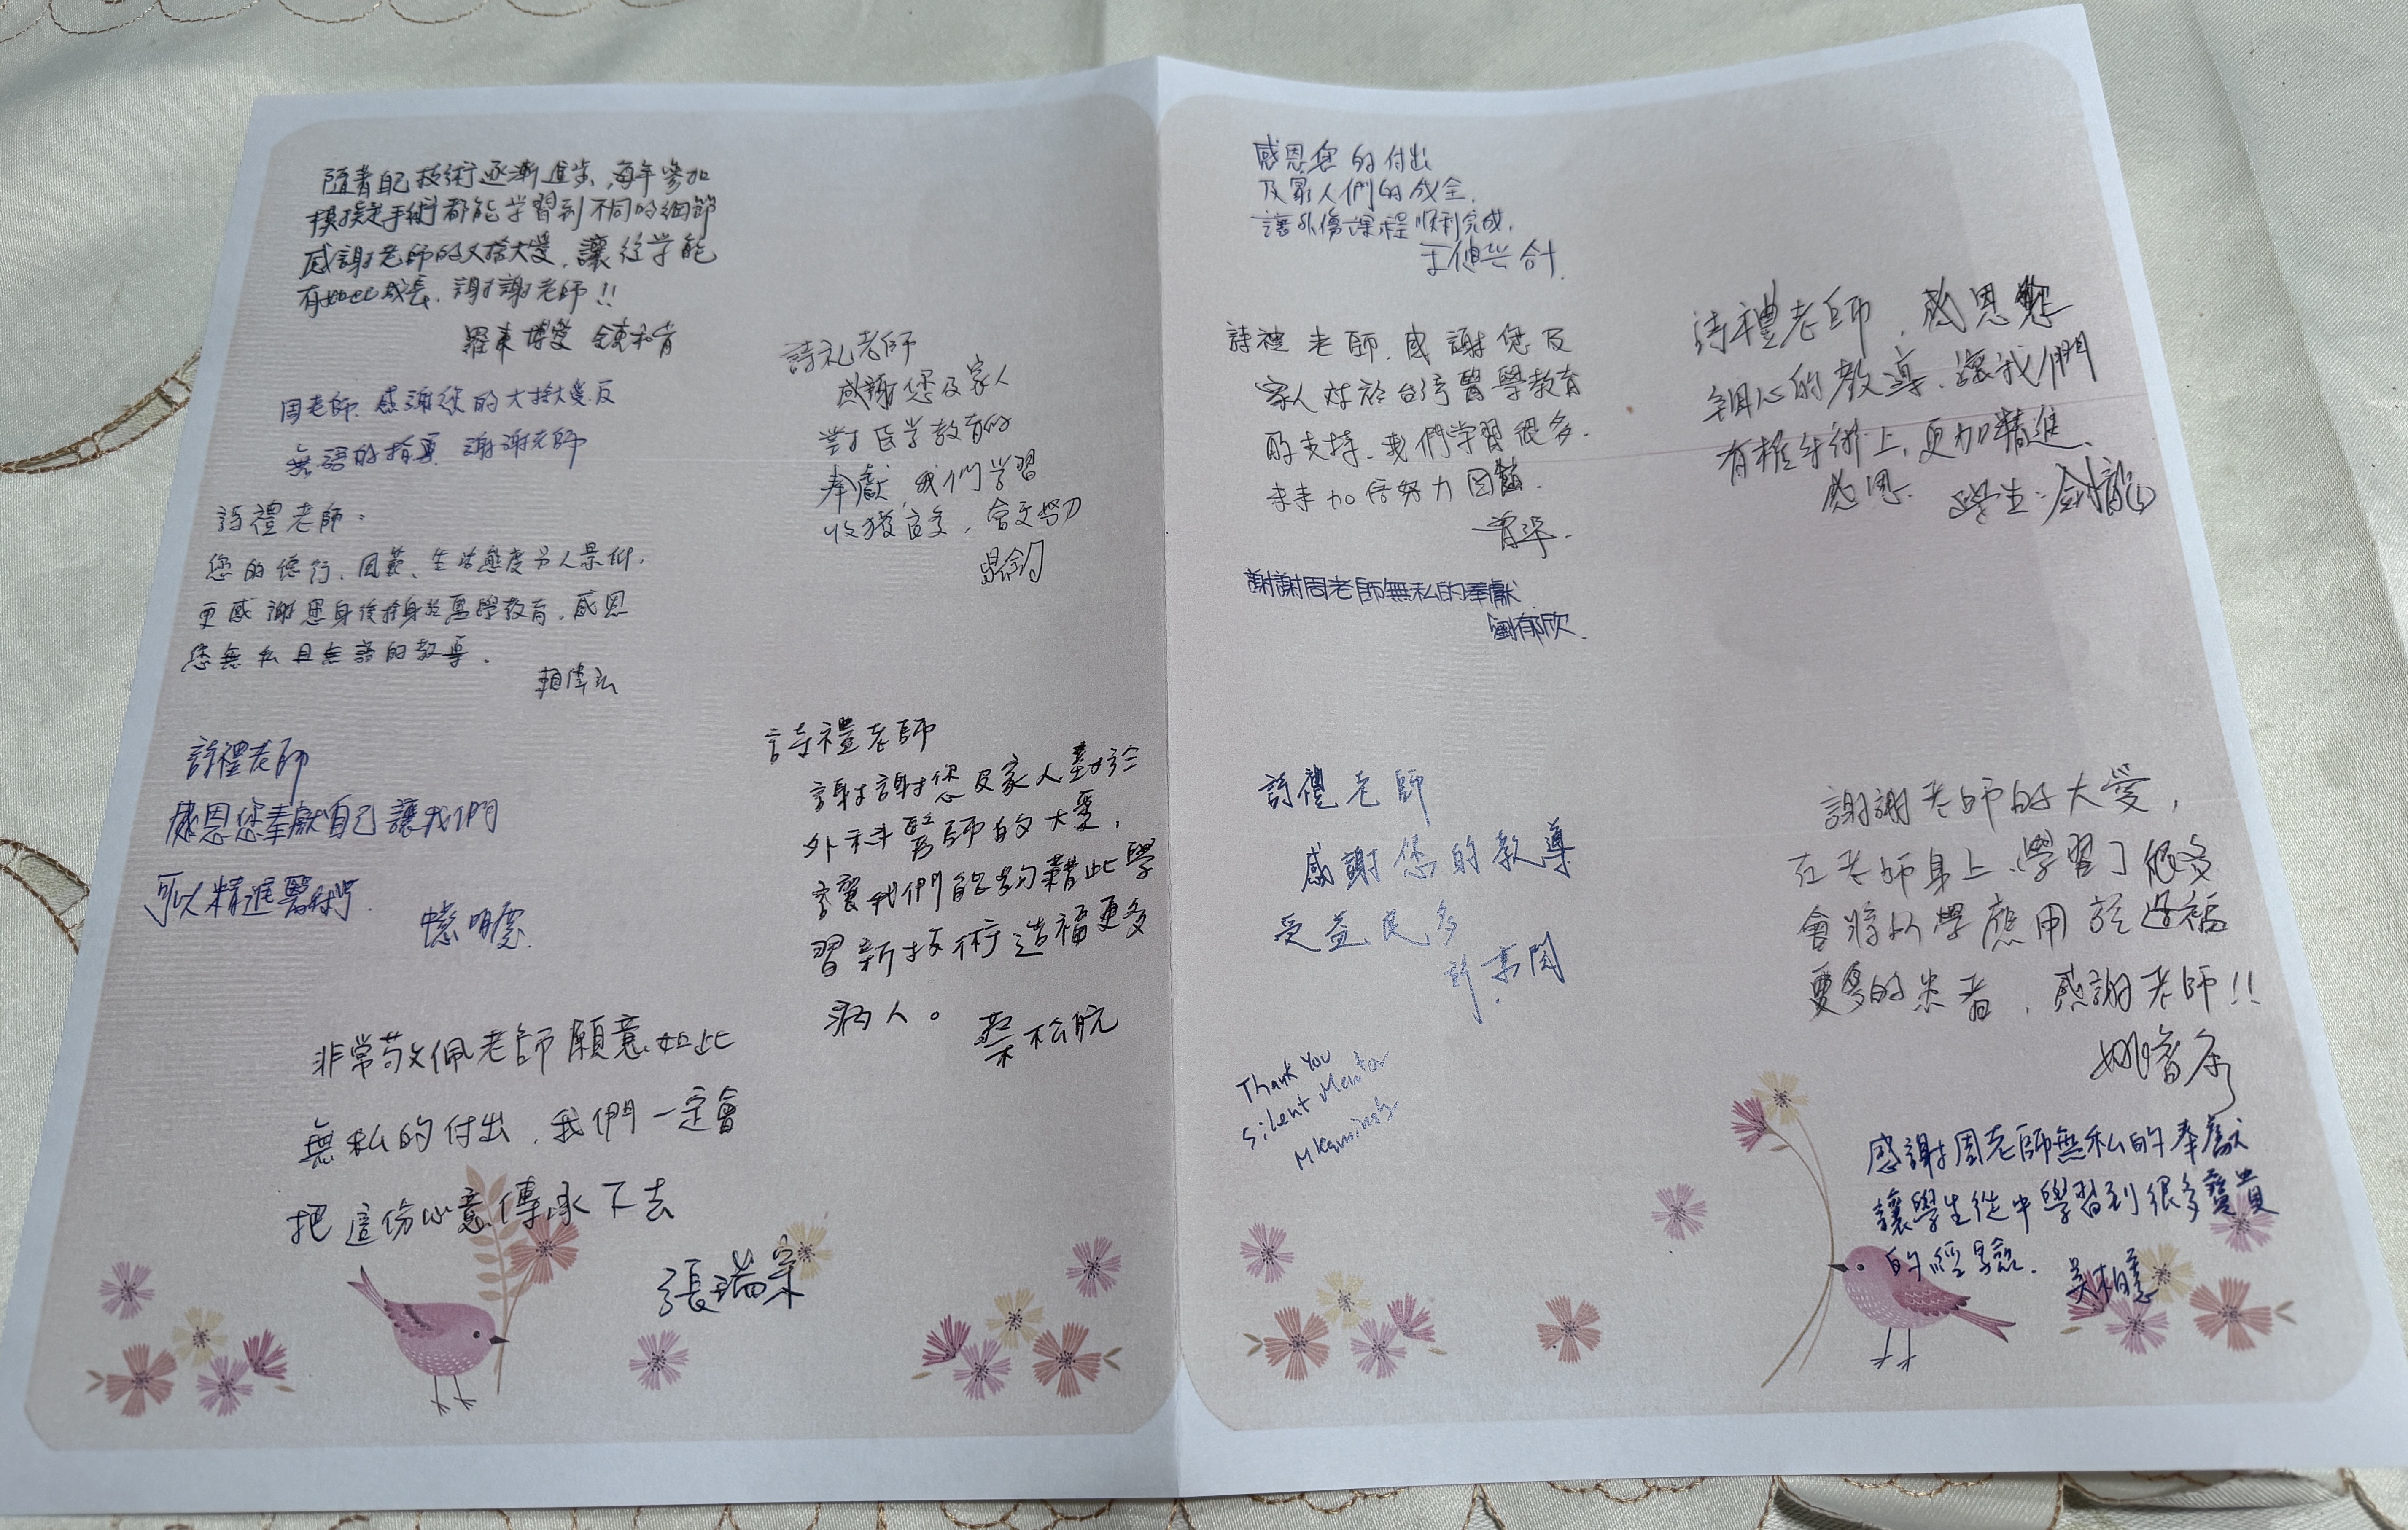 隨著自己技術逐漸進步,每年參加
模擬手術都能学習到不同的細節
感謝老師的大捨大愛,讓後学能
有如此成長,謝謝老師!!
羅東博愛
周老師,感謝您的大捨大愛及
無語的指導 謝謝老師
詩禮老師:
您的德行、風範、生活態度另人景仰,
更感謝您身後捨身於醫學教育,感恩
您無私且無語的教導.
賴偉弘
詩禮老師
感恩您奉獻自己讓我們
可以精進醫術
非常敬佩老師願意如此
無私的付出,我們一定會
把這份心意傳承下去
張瑞
詩礼老師
感謝您及家人
對医学教育的
奉獻,我們学習
收獲良多,會更努力
詩禮老師
謝謝您及家人對於
外科醫師的大愛,
讓我們能夠藉此學
習新技術造福更多
病人。
蔡松航
感恩您的付出
及家人們的成全,
讓外傷課程順利完成,
詩禮老師,感謝您及
家人对於台湾醫學教育
的支持,我們学習很多.
未来加倍努力回饋.
謝謝周老師無私的奉獻
劉郁欣.
詩禮老師,感恩您
細心的教導,讓我們
有機手術上,更加精進
感恩. 學生:
詩禮老師
感謝您的教導
受益良多
Thank You
Silent Mentor
謝謝老師的大愛,
在老師身上學習了很多
會將所學應用於造福
更多的患者,感謝老師!!
感謝周老師無私的奉獻
讓學生從中學習到很多寶貴
的經驗.